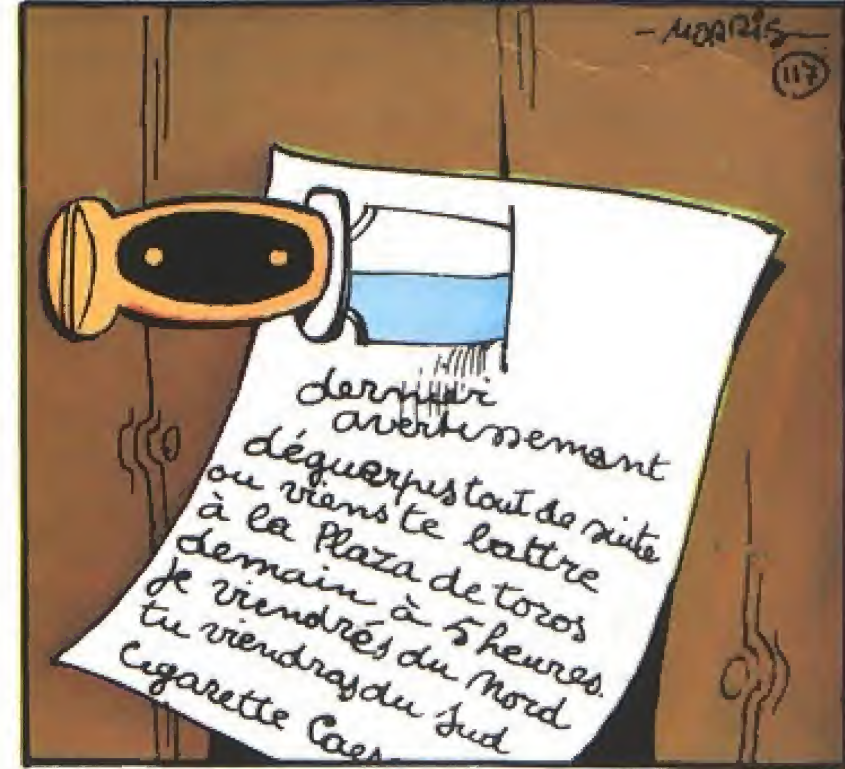 - MORRIS
117
dernier
avertissement
déguerpis tout de suite
ou viens te battre
à la Plaza de toros
demain à 5 heures.
je viendrés du nord
tu viendras du sud
Cigarette Caes